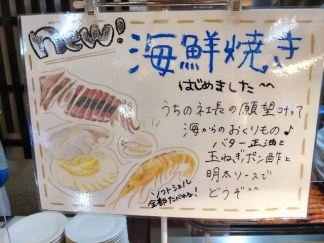 new!
海鮮焼き
はじめました^^
うちの社長の願望叶って
海からのおくりもの♪
バター正油と
玉ねぎポン酢と
明太ソースで
どうぞ^^
ソフトシェル
全部たべれる!